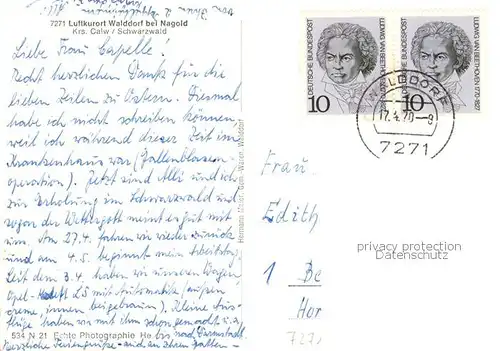 7271 Luftkurort Walddorf bei Nagold
Krs. Calw / Schwarzwald
Liebe Frau Capelle!
Recht herzlichen Dank für die
lieben Zeilen zu Ostern. Diesmal
habe ich nicht schreiben können,
weil ich während dieser Zeit im
Krankenhaus war (Gallenblasen-
operation). Jetzt sind Alli und ich
zur Erholung im Schwarzwald und
sogar der Wettergott meint es gut mit
uns. Am 27.4. fahren wir wieder zurück
und am 4.5. beginnt mein Arbeitstag.
Seit dem 3.4. haben wir unseren Wagen
Opel- LS mit Automatik (außen
creme, innen beigebraun). Kleine Aus-
flüge haben wir mit ihm schon gemacht u.a.
bis nach Darmstadt.
534 N 21 Echte Photographie He
Herzliche Feriengrüße - auch an Ihren Gatten -
DEUTSCHE BUNDESPOST
LUDWIG VAN BEETHOVEN 1770-1827
10
DEUTSCHE BUNDESPOST
LUDWIG VAN BEETHOVEN 1770-1827
10
WALDDORF
17.4.70-9
7271
Frau
Edith
1 Be
Hor
727
privacy protection
Datenschutz